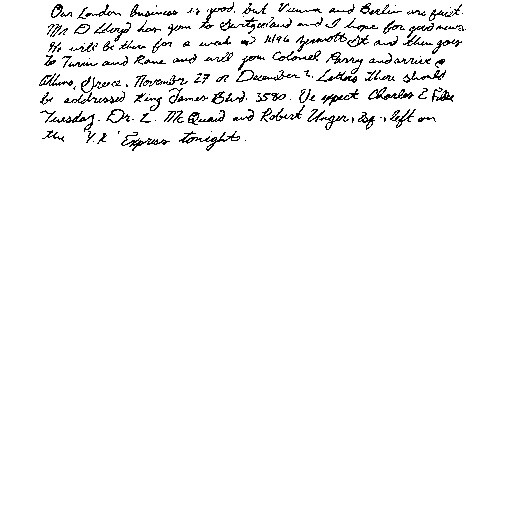 Our London business is good, but Vienna and Berlin are quiet.
Mr. D. Lloyd has gone to Switzerland and I hope for good news.
He will be there for a week at 1496 Zermott St. and then goes
to Turin and Rome and will join Colonel Parry and arrive @
Athens, Greece, November 27 or December 2. Letters there should
be addressed King James Blvd. 3580. We expect Charles E.
Tuesday. Dr. L. McQuaid and Robert Unger, Esq., left on
the 'Y.X.' Express tonight.